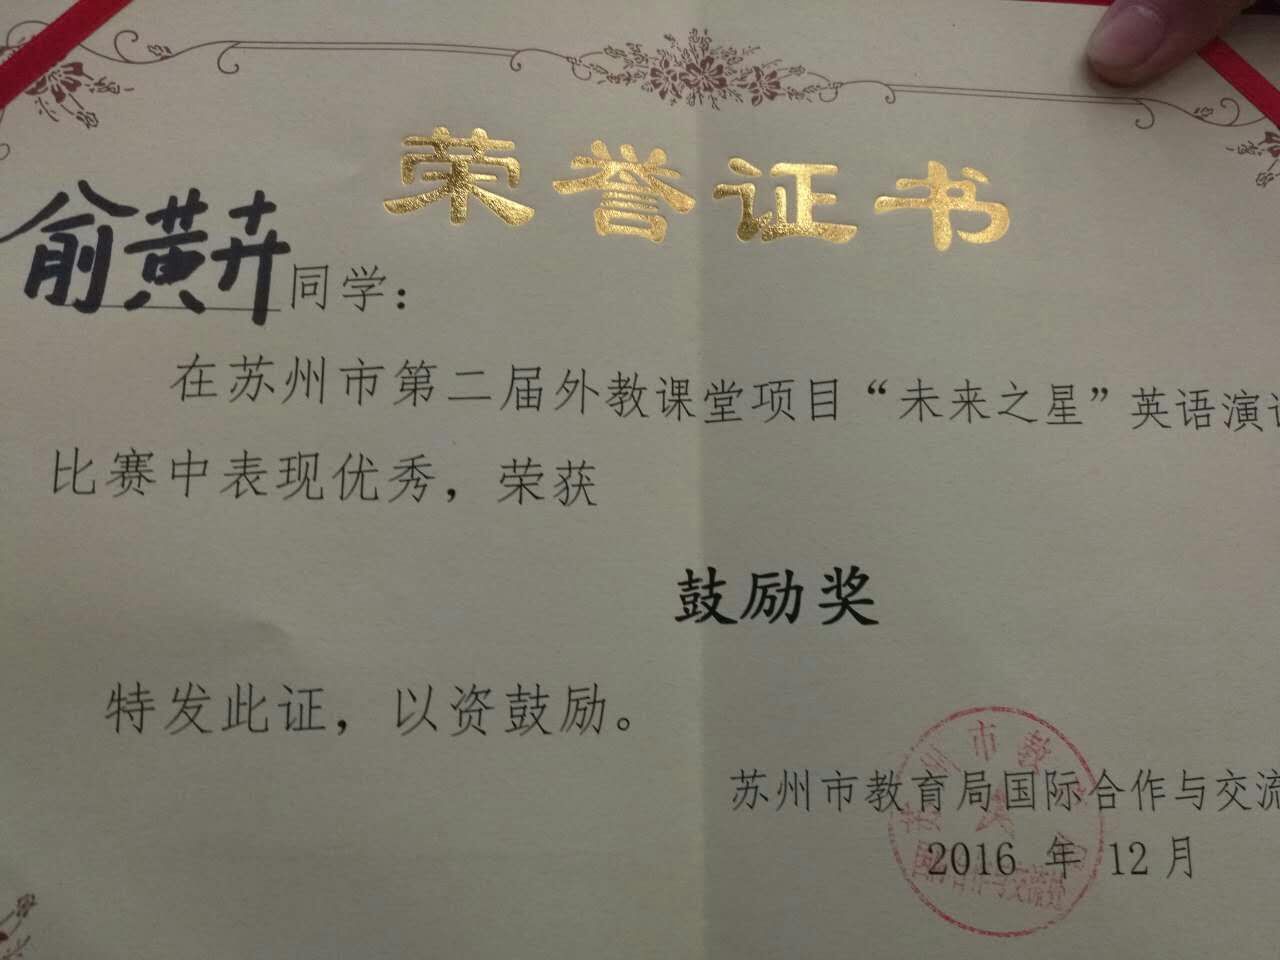 荣誉证书
俞黄卉同学：
在苏州市第二届外教课堂项目“未来之星”英语演讲
比赛中表现优秀，荣获
鼓励奖
特发此证，以资鼓励。
苏州市教育局国际合作与交流
2016 年 12 月